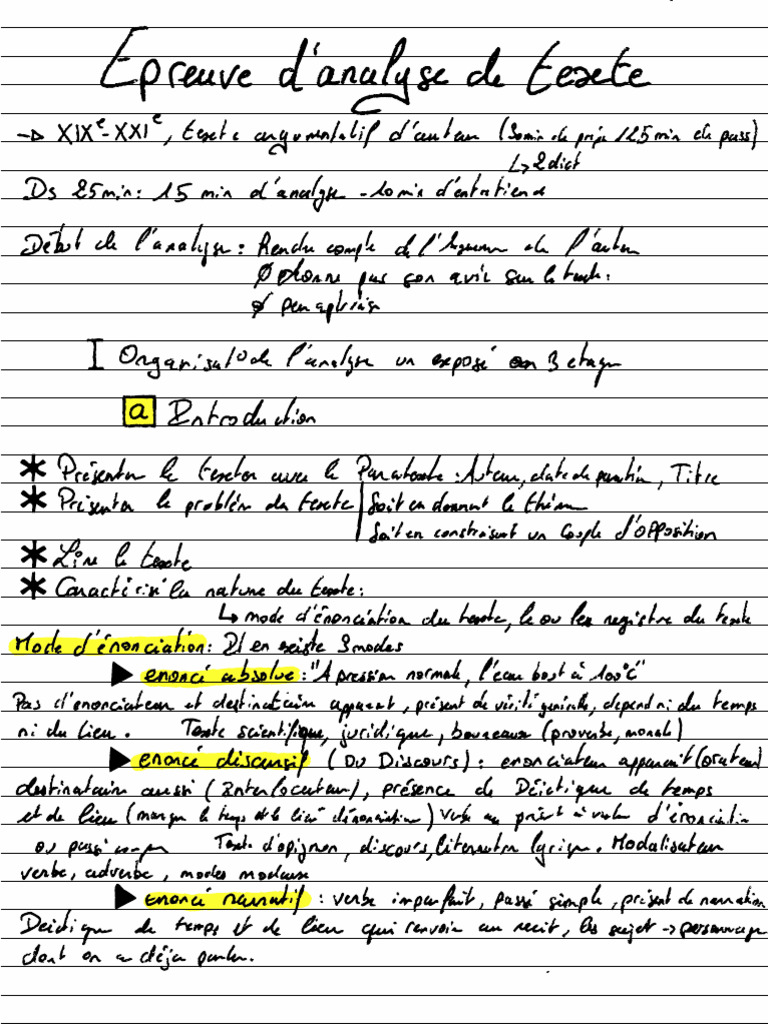 Epreuve d'analyse de texete
→ XIXe-XXIe, texete argumentatif d'auteur (30min de prépa 125min de pass)
↳ 2dict
Ds 25min: 15 min d'analyse - 10min d'entretiens
Début de l'analyse: Rendre compte de l' de l'auteur
Ø donne pas son avis sur le texte.
Ø
I Organisat° de l'analyse un exposé en 3 etape
a Introduction
* Présenter le texte avec le Paratexte: Auteur, date de parution, Titre
* Présenter le problém du texete | Soit en donnant le thème
Soit en construisant un Couple d'opposition
* Lire le texete
* Caractérisé la nature du texete:
↳ mode d'énonciation du texete, le ou les registre du texte
Mode d'énonciation: Il en existe 3 modes
▶ enoncé absolue: "A pression normale, l'eau bout à 100°C"
Pas d'enonciateur et destinataire apparent, présent de vérité générale, depend ni du temps
ni du lieu. Texte scientifique, juridique, (proverbe, morale)
▶ enoncé discursif (Du Discours): enonciateur apparait (orateur)
destinataire aussi (Interlocuteur), présence de Déictique de temps
et de lieu (marque le temps et le lieu d'énonciation) verbe au présent à valeur d'énonciation
ou passé comp Texte d'opignon, discours, literature lyrique. Modalisateur
verbe, adverbe, modes
▶ enoncé narratif: verbe imparfait, passé simple, présent de narration
Deictique de temps et de lieu qui renvoie au récit, les sujet → personnage
dont on a déja parler.